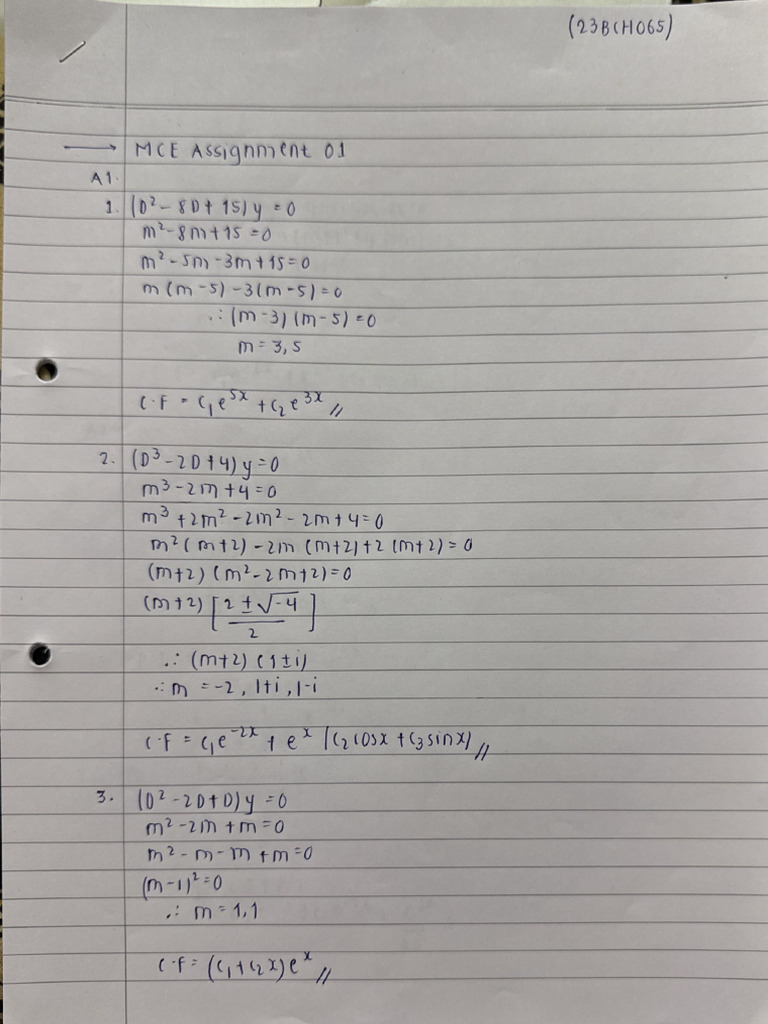 (23BCH065)
→ MCE Assignment 01
A1.
1. (D² - 8D + 15) y = 0
m² - 8m + 15 = 0
m² - 5m - 3m + 15 = 0
m (m - 5) - 3(m - 5) = 0
∴ (m - 3) (m - 5) = 0
m = 3, 5
C.F = C₁e⁵ˣ + C₂e³ˣ //
2. (D³ - 2D + 4) y = 0
m³ - 2m + 4 = 0
m³ + 2m² - 2m² - 2m + 4 = 0
m² (m + 2) - 2m (m + 2) + 2 (m + 2) = 0
(m + 2) (m² - 2m + 2) = 0
(m + 2) [(2 ± √-4) / 2]
∴ (m + 2) (1 ± i)
∴ m = -2, 1+i, 1-i
C.F = C₁e⁻²ˣ + eˣ (C₂cosx + C₃sinx) //
3. (D² - 2D + D) y = 0
m² - 2m + m = 0
m² - m - m + m = 0
(m - 1)² = 0
∴ m = 1, 1
C.F = (C₁ + C₂x) eˣ //